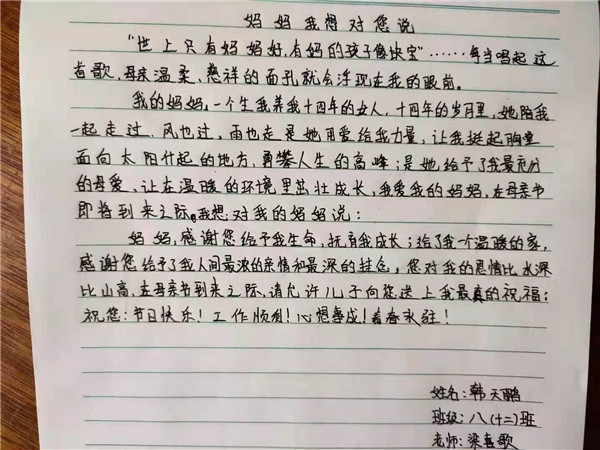 妈妈我想对您说
“世上只有妈妈好,有妈的孩子像块宝”……每当唱起这
首歌,母亲温柔、慈祥的面孔就会浮现在我的眼前。
我的妈妈,一个生我养我十四年的女人,十四年的岁月里,她陪我
一起走过.风也过,雨也走是她用爱给我力量,让我挺起胸堂
面向太阳升起的地方,勇攀人生的高峰;是她给予了我最充分
的母爱,让在温暖的环境里茁壮成长,我爱我的妈妈,在母亲节
即将到来之际。我想对我的妈妈说:
妈妈,感谢您给予我生命,抚育我成长;给了我一个温暖的家,
感谢您给予了我人间最浓的亲情和最深的挂念,您对我的恩情比水深
比山高,在母亲节到来之际,请允许儿子向您送上我最真的祝福:
祝您:节日快乐!工作顺利!心想事成!青春永驻!
姓名:韩天鹏
班级:八(十二)班
老师:梁喜歌